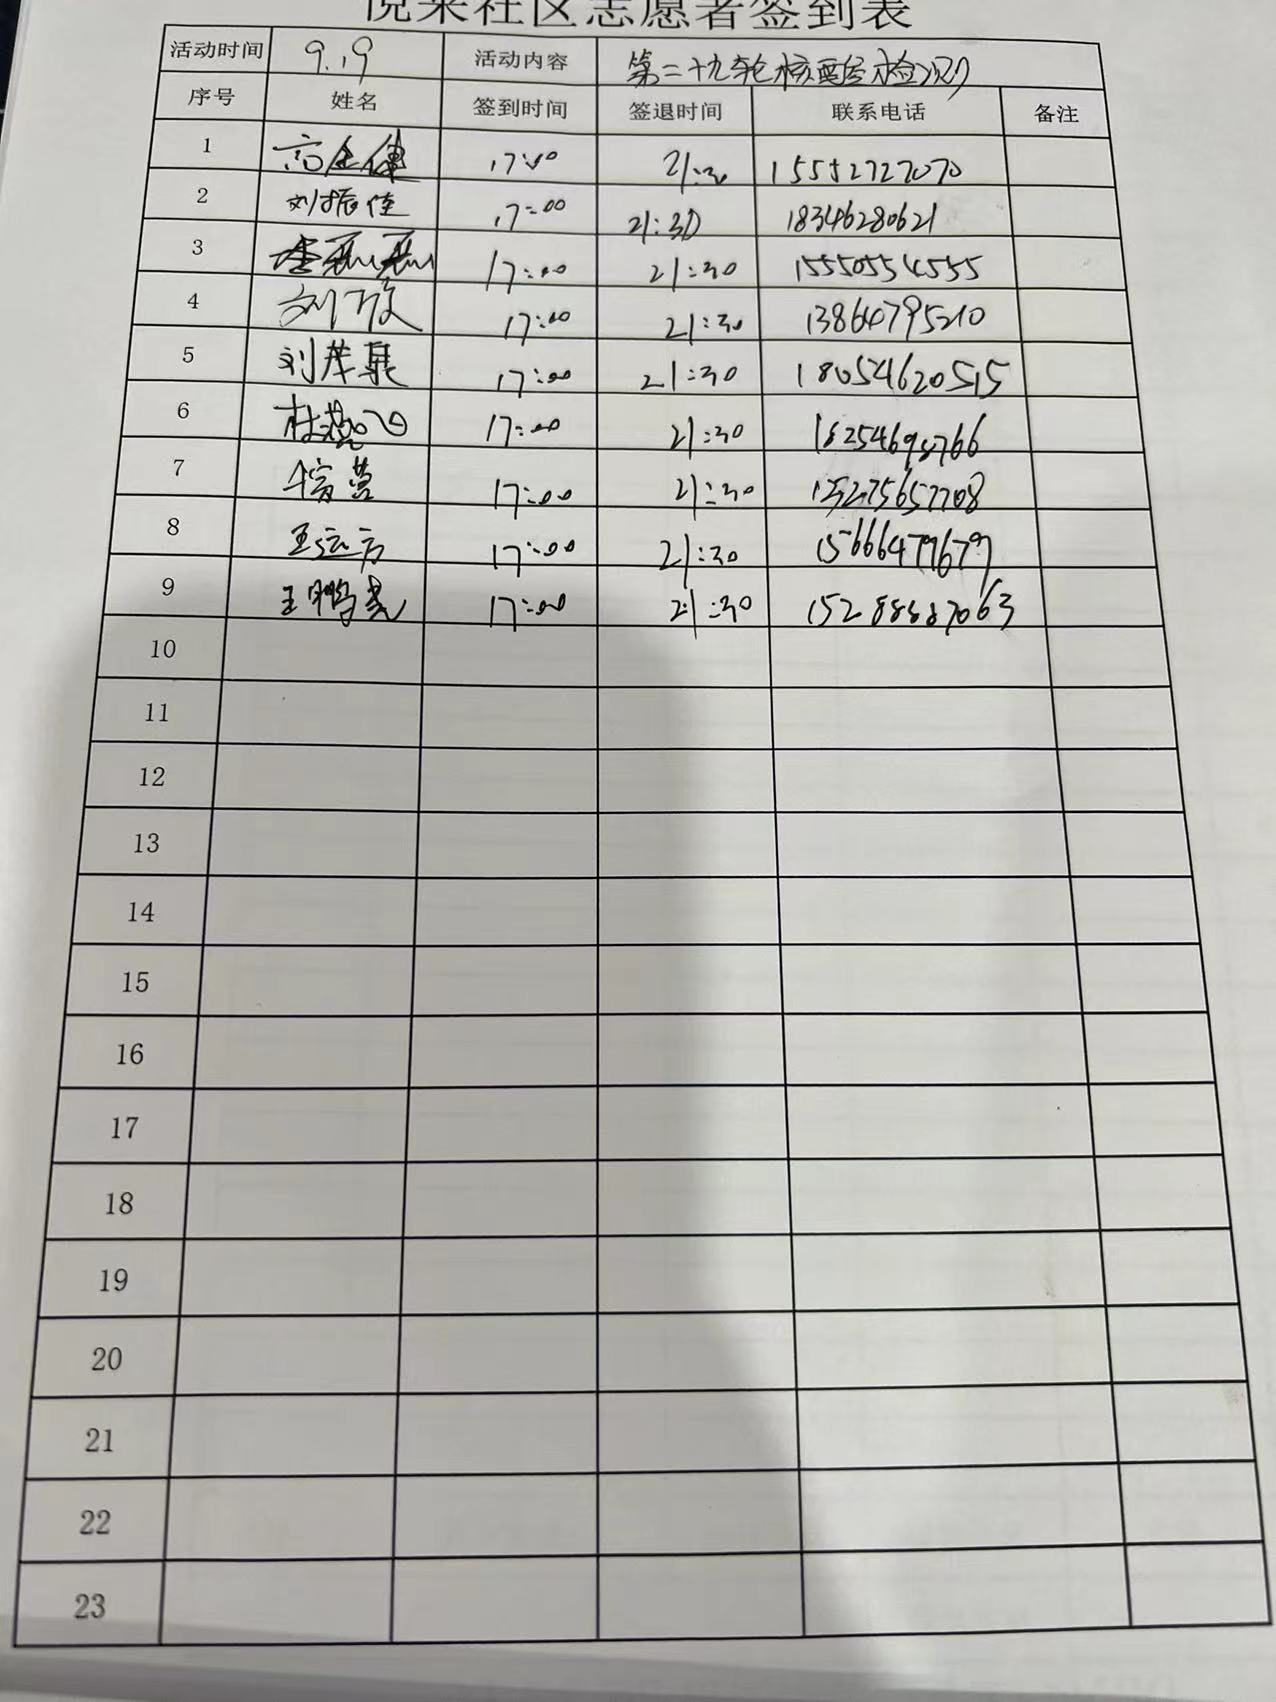 悦来社区志愿者签到表
活动时间 9.19 活动内容 第二十九轮核酸检测
序号 姓名 签到时间 签退时间 联系电话 备注
1 高金健 17:00 21:30 15552727070
2 刘振佳 17:00 21:30 18346280621
3 李磊磊 17:00 21:30 15550554555
4 刘欣 17:00 21:30 13864795210
5 刘萍 17:00 21:30 18054620515
6 杜燕飞 17:00 21:30
7 17:00 21:30 15275657708
8 王远方 17:00 21:30 15666479679
9 王鹏尧 17:00 21:30
10
11
12
13
14
15
16
17
18
19
20
21
22
23